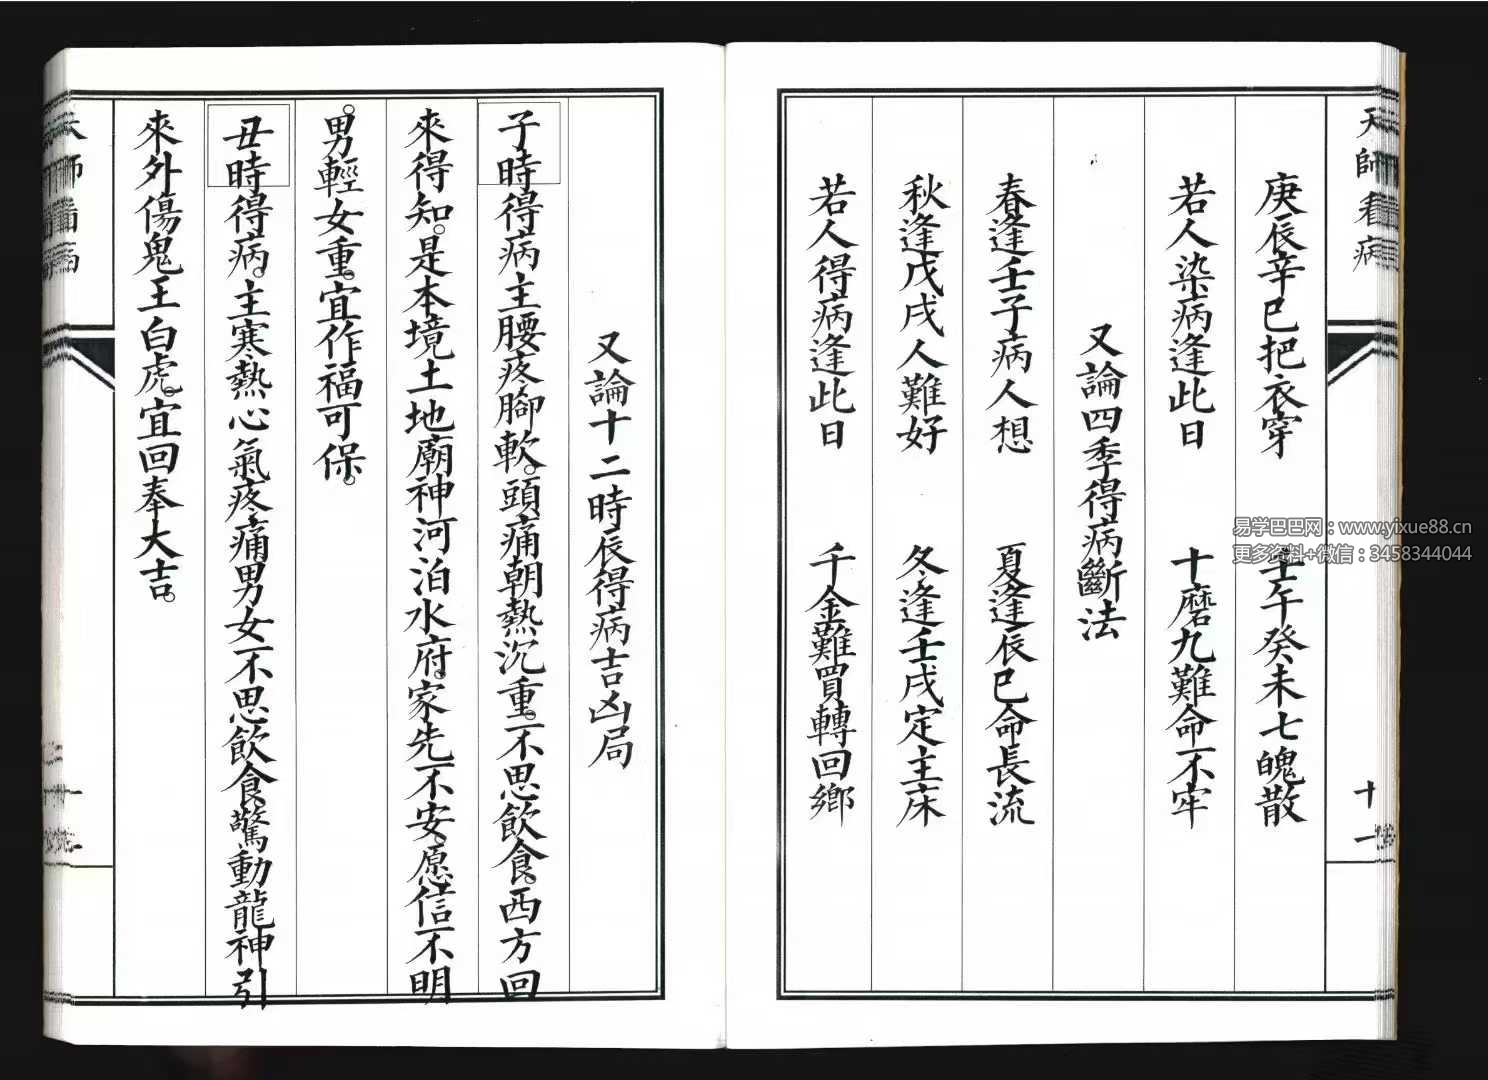 天師看病
十一
庚辰辛巳把衣穿　壬午癸未七魄散
若人染病逢此日　十磨九難命不牢
又論四季得病斷法
春逢壬子病人想　夏逢辰巳命長流
秋逢戊戌人難好　冬逢壬戌定主床
若人得病逢此日　千金難買轉回鄉
又論十二時辰得病吉凶局
子時得病主腰疼腳軟。頭痛朝熱沉重。不思飲食。西方回
來得知。是本境土地廟神河泊水府。家先不安。愿信不明
。男輕女重。宜作福可保。
丑時得病。主寒熱心氣疼痛男女不思飲食驚動龍神引
來外傷鬼王白虎。宜回奉大吉。
易学巴巴网：www.yixue88.cn
更多资料+微信：3458344044